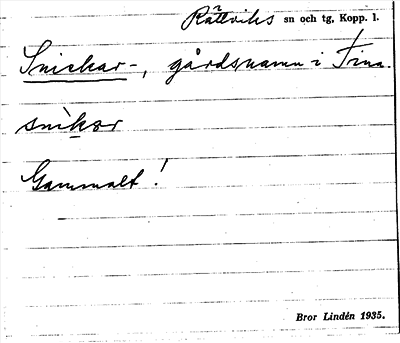 Rättviks sn och tg, Kopp. l.
Snickar-, gårdsnamn i
snìkar
Gammalt!
Bror Lindén 1935.